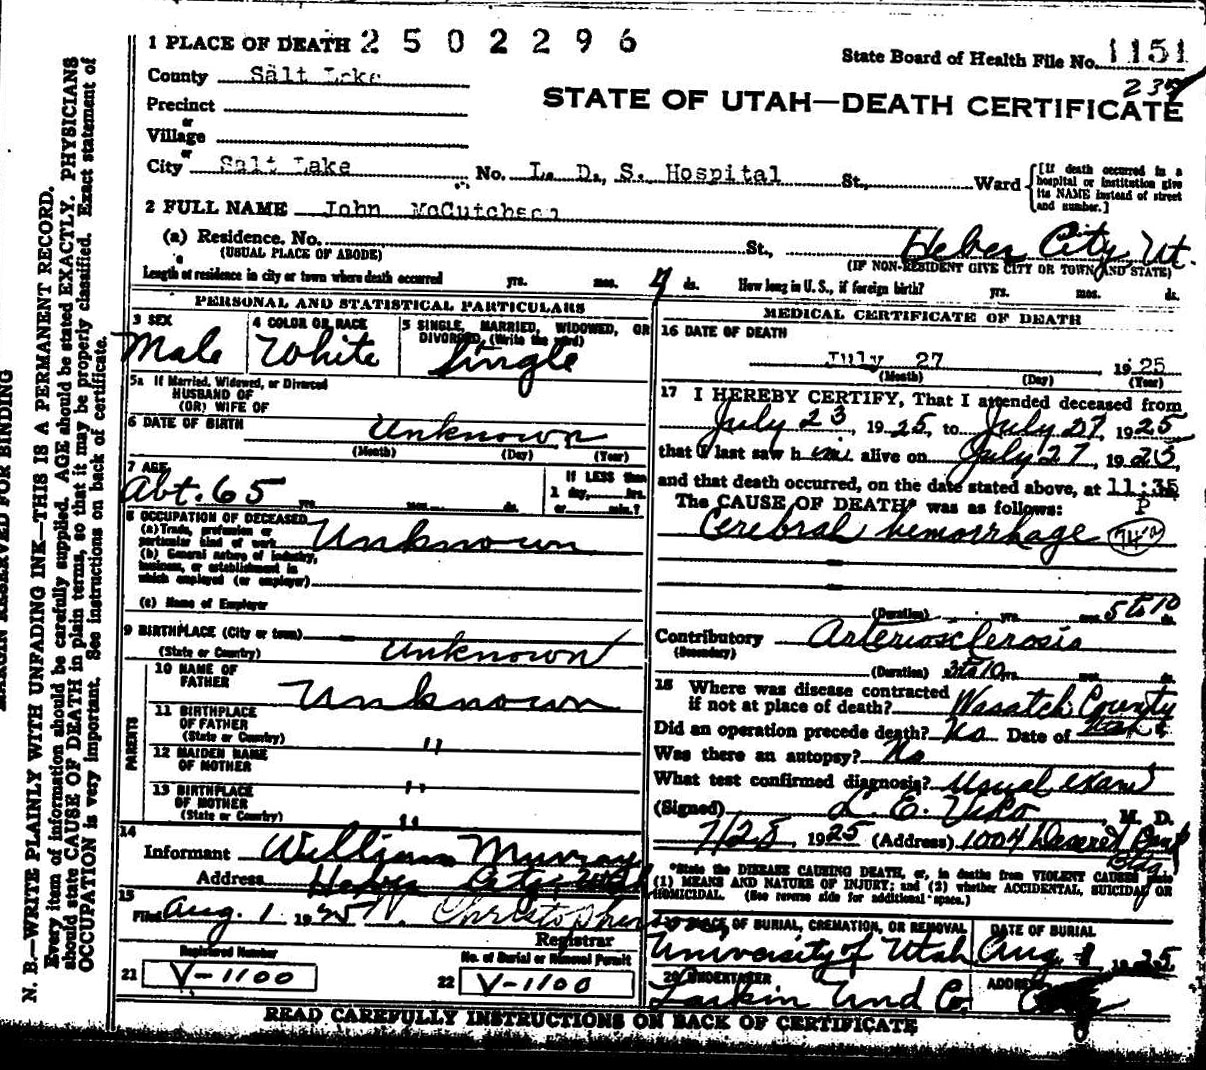 MARGIN RESERVED FOR BINDING
N. B.—WRITE PLAINLY WITH UNFADING INK—THIS IS A PERMANENT RECORD.
Every item of information should be carefully supplied. AGE should be stated EXACTLY. PHYSICIANS
should state CAUSE OF DEATH in plain terms, so that it may be properly classified. Exact statement of
OCCUPATION is very important. See instructions on back of certificate.
1 PLACE OF DEATH 2502296
State Board of Health File No. 1151
County Salt Lake
STATE OF UTAH—DEATH CERTIFICATE
Precinct
or
Village
or
City Salt Lake No. L. D. S. Hospital St., Ward
[If death occurred in a
hospital or institution give
its NAME instead of street
and number.]
2 FULL NAME John McCutcheon
(a) Residence. No. St., Heber City, Ut.
(USUAL PLACE OF ABODE) (IF NON-RESIDENT GIVE CITY OR TOWN AND STATE)
Length of residence in city or town where death occurred yrs. mos. 4 ds. How long in U. S., if foreign birth? yrs. mos. ds.
PERSONAL AND STATISTICAL PARTICULARS
3 SEX
Male
4 COLOR OR RACE
White
5 SINGLE, MARRIED, WIDOWED, OR
DIVORCED, (Write the word)
Single
5a If Married, Widowed, or Divorced
HUSBAND OF
(OR) WIFE OF
6 DATE OF BIRTH Unknown
(Month) (Day) (Year)
7 AGE
Abt. 65 yrs. mos. ds.
If LESS than
1 day, hrs.
or min.?
8 OCCUPATION OF DECEASED
(a) Trade, profession or
particular kind of work Unknown
(b) General nature of industry,
business, or establishment in
which employed (or employer)
(c) Name of Employer
9 BIRTHPLACE (City or town)
(State or Country) Unknown
PARENTS
10 NAME OF
FATHER Unknown
11 BIRTHPLACE
OF FATHER
(State or Country) "
12 MAIDEN NAME
OF MOTHER "
13 BIRTHPLACE
OF MOTHER
(State or Country) "
14
Informant William Murray
Address Heber City Utah
15
Filed Aug. 1 1925 Christopherson
Registrar
Registered Number
21 V-1100
No. of Burial or Removal Permit
22 V-1100
MEDICAL CERTIFICATE OF DEATH
16 DATE OF DEATH
July 27 1925
(Month) (Day) (Year)
17 I HEREBY CERTIFY, That I attended deceased from
July 23, 1925, to July 27, 1925
that I last saw him alive on July 27, 1925,
and that death occurred, on the date stated above, at 11:35
P
The CAUSE OF DEATH was as follows:
Cerebral hemorrhage
(Duration) yrs. mos. 5 to 10 ds.
Contributory Arteriosclerosis
(Secondary)
(Duration) yrs. mos. ds.
18 Where was disease contracted
if not at place of death? Wasatch County
Did an operation precede death? No Date of
Was there an autopsy? No
What test confirmed diagnosis? Usual exam
(Signed) L. E. Viko, M. D.
7/28 1925 (Address) 1004 Deseret Bank
Bldg.
*State the DISEASE CAUSING DEATH, or, in deaths from VIOLENT CAUSES state
(1) MEANS AND NATURE OF INJURY; and (2) whether ACCIDENTAL, SUICIDAL OR
HOMICIDAL. (See reverse side for additional space.)
19 PLACE OF BURIAL, CREMATION, OR REMOVAL
University of Utah
DATE OF BURIAL
Aug 1 1925
20 UNDERTAKER
Larkin Und Co.
ADDRESS
City
READ CAREFULLY INSTRUCTIONS ON BACK OF CERTIFICATE